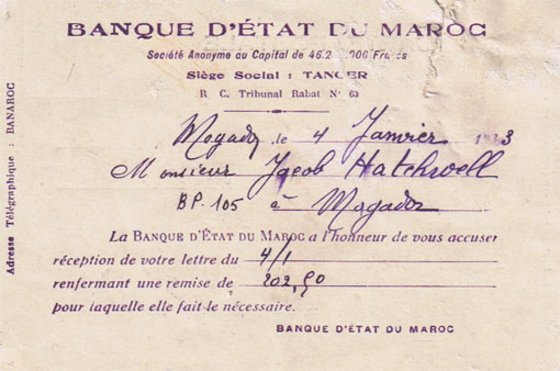 BANQUE D'ÉTAT DU MAROC
Société Anonyme au Capital de 46.2 000 Francs
Siège Social : TANGER
R C. Tribunal Rabat N° 63
Mogador, le 4 Janvier
Monsieur Jacob Hatchwell
BP. 105 à Mogador
La BANQUE D'ÉTAT DU MAROC a l'honneur de vous accuser
réception de votre lettre du 4/1
renfermant une remise de 202,50
pour laquelle elle fait le nécessaire.
BANQUE D'ÉTAT DU MAROC
Adresse Télégraphique : BANAROC